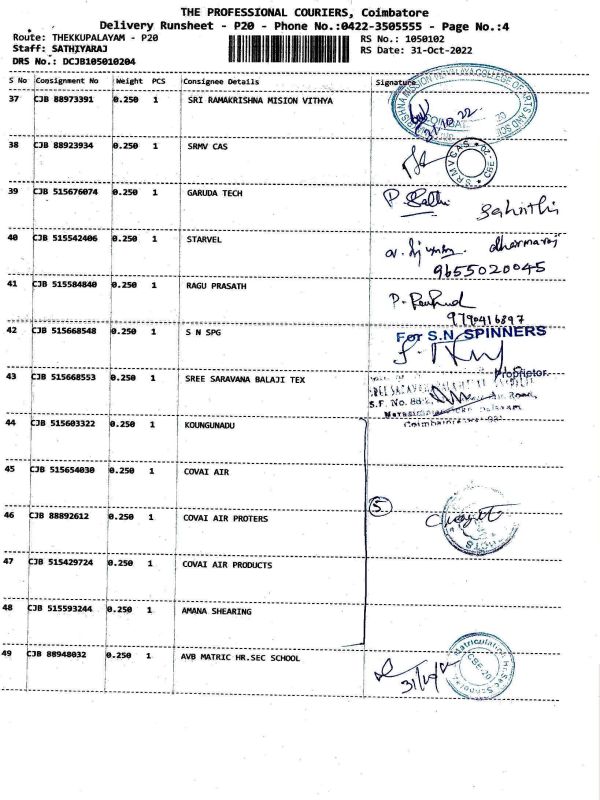 THE PROFESSIONAL COURIERS, Coimbatore
Delivery Runsheet - P20 - Phone No.:0422-3505555 - Page No.:4
Route: THEKKUPALAYAM - P20 RS No.: 1050102
Staff: SATHIYARAJ RS Date: 31-Oct-2022
DRS No.: DCJB105010204
S No Consignment No Weight PCS Consignee Details Signature
37 CJB 88973391 0.250 1 SRI RAMAKRISHNA MISION VITHYA
31.10.22
38 CJB 88923934 0.250 1 SRMV CAS
SRMV CAS CBE - 20
39 CJB 515676074 0.250 1 GARUDA TECH
40 CJB 515542406 0.250 1 STARVEL dharmaraj
9655020045
41 CJB 515584840 0.250 1 RAGU PRASATH
9790416897
42 CJB 515668548 0.250 1 S N SPG For S.N. SPINNERS
Proprietor
43 CJB 515668553 0.250 1 SREE SARAVANA BALAJI TEX
S.F. No. Road,
44 CJB 515603322 0.250 1 KOUNGUNADU
45 CJB 515654030 0.250 1 COVAI AIR
5
46 CJB 88892612 0.250 1 COVAI AIR PROTERS
47 CJB 515429724 0.250 1 COVAI AIR PRODUCTS
48 CJB 515593244 0.250 1 AMANA SHEARING
49 CJB 88948032 0.250 1 AVB MATRIC HR.SEC SCHOOL
Matriculation Hr. Sec School CBE-20